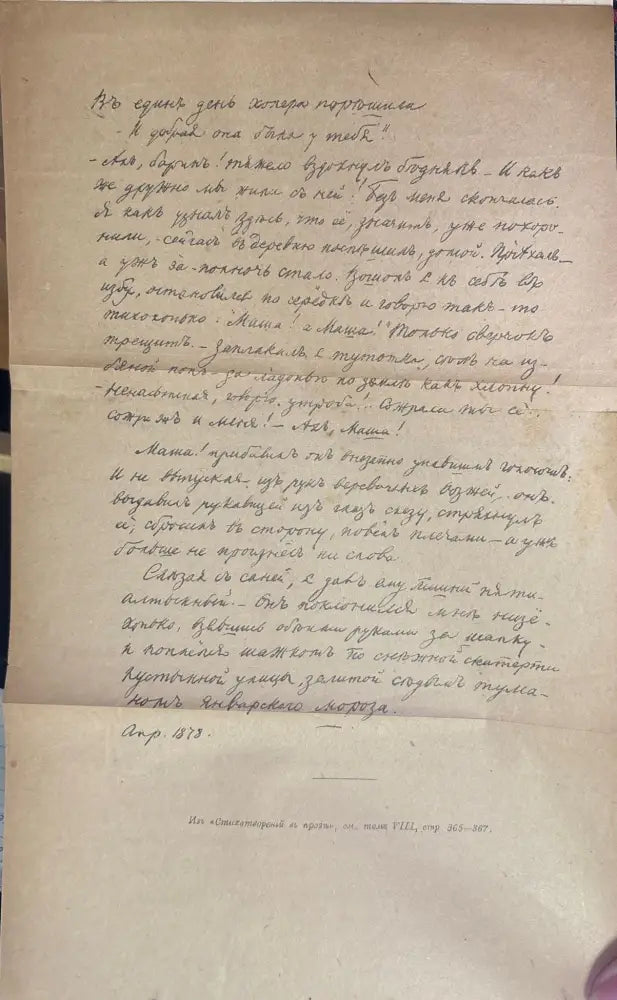 Въ единъ день холера порѣшила
– И добрая она была у тебя?"
– Ахъ, баринъ! тяжело вздохнулъ бѣднякъ – И какъ
же дружно мы жили съ ней! Безъ меня скончалась.
Я какъ узналъ здѣсь, что её, значитъ, уже похоро-
нили, – сейчасъ въ деревню поспѣшилъ, домой. Пріѣхалъ –
а ужъ за-полночь стало. Вошолъ я къ себѣ въ
избу, остановился по серёдкѣ и говорю такъ-то
тихохонько: "Маша! а Маша!" Только сверчокъ
трещитъ. – Заплакалъ я тутотка, сѣлъ на из-
бяной полъ – да ладонью по землѣ какъ хлопну!
– Ненасытная, говорю, утроба!.. Сожрала ты её...
сожри жъ и меня! – Ахъ, Маша!
Маша! прибавилъ онъ внезапно упавшимъ голосомъ.
И не выпуская изъ рукъ верёвочныхъ возжей, онъ
выдавилъ рукавицей изъ глазъ слезу, стряхнулъ
её, сбросилъ въ сторону, повёлъ плечами – а уже
больше не произнёсъ ни слова.
Слѣзая съ саней, я далъ ему лишній пяти-
алтынный. – Онъ поклонился мнѣ низё-
хонько, взявшись обѣими руками за шапку –
и поплёлся шажкомъ по снѣжной скатерти
пустынной улицы, залитой сѣдымъ тума-
номъ январскаго мороза.
Апр. 1878.
Изъ «Стихотвореній въ прозѣ», см. томъ VIII, стр. 365—367.